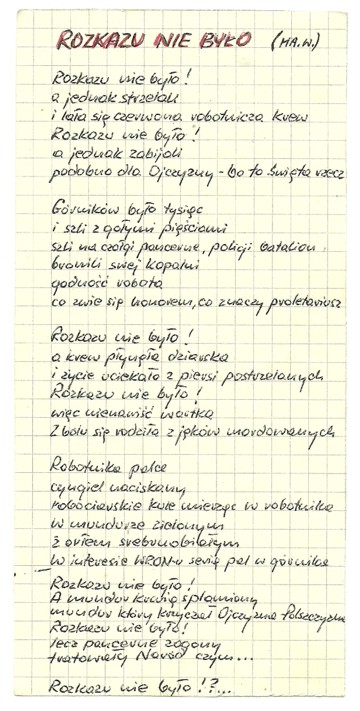 ROZKAZU NIE BYŁO (MA.W.)
Rozkazu nie było!
a jednak strzelali
i lała się czerwona robotnicza krew
Rozkazu nie było!
a jednak zabijali
podobno dla Ojczyzny - bo to Święta rzecz
Górników było tysiąc
i szli z gołymi pięściami
szli na czołgi pancerne, policji batalion
bronili swej kopalni
godność robota
co zwie się honorem, co znaczy proletariusz
Rozkazu nie było!
a krew płynęła dziarska
i życie uciekało z piersi postrzelanych
Rozkazu nie było!
więc nienawiść wartka
Z bólu się rodziła z jęków mordowanych
Robotnika palce
cyngiel naciskamy
robociarskie kule mierząc w robotnika
w mundurze zielonym
z orłem srebrnobiałym
w interesie WRON-u serię pal w górnika
Rozkazu nie było!
A mundur krwią splamiony
mundur który krzyczał Ojczyzna Polszczyzna
Rozkazu nie było!
lecz pancerne zagony
tratowały Naród czym...
Rozkazu nie było!?...